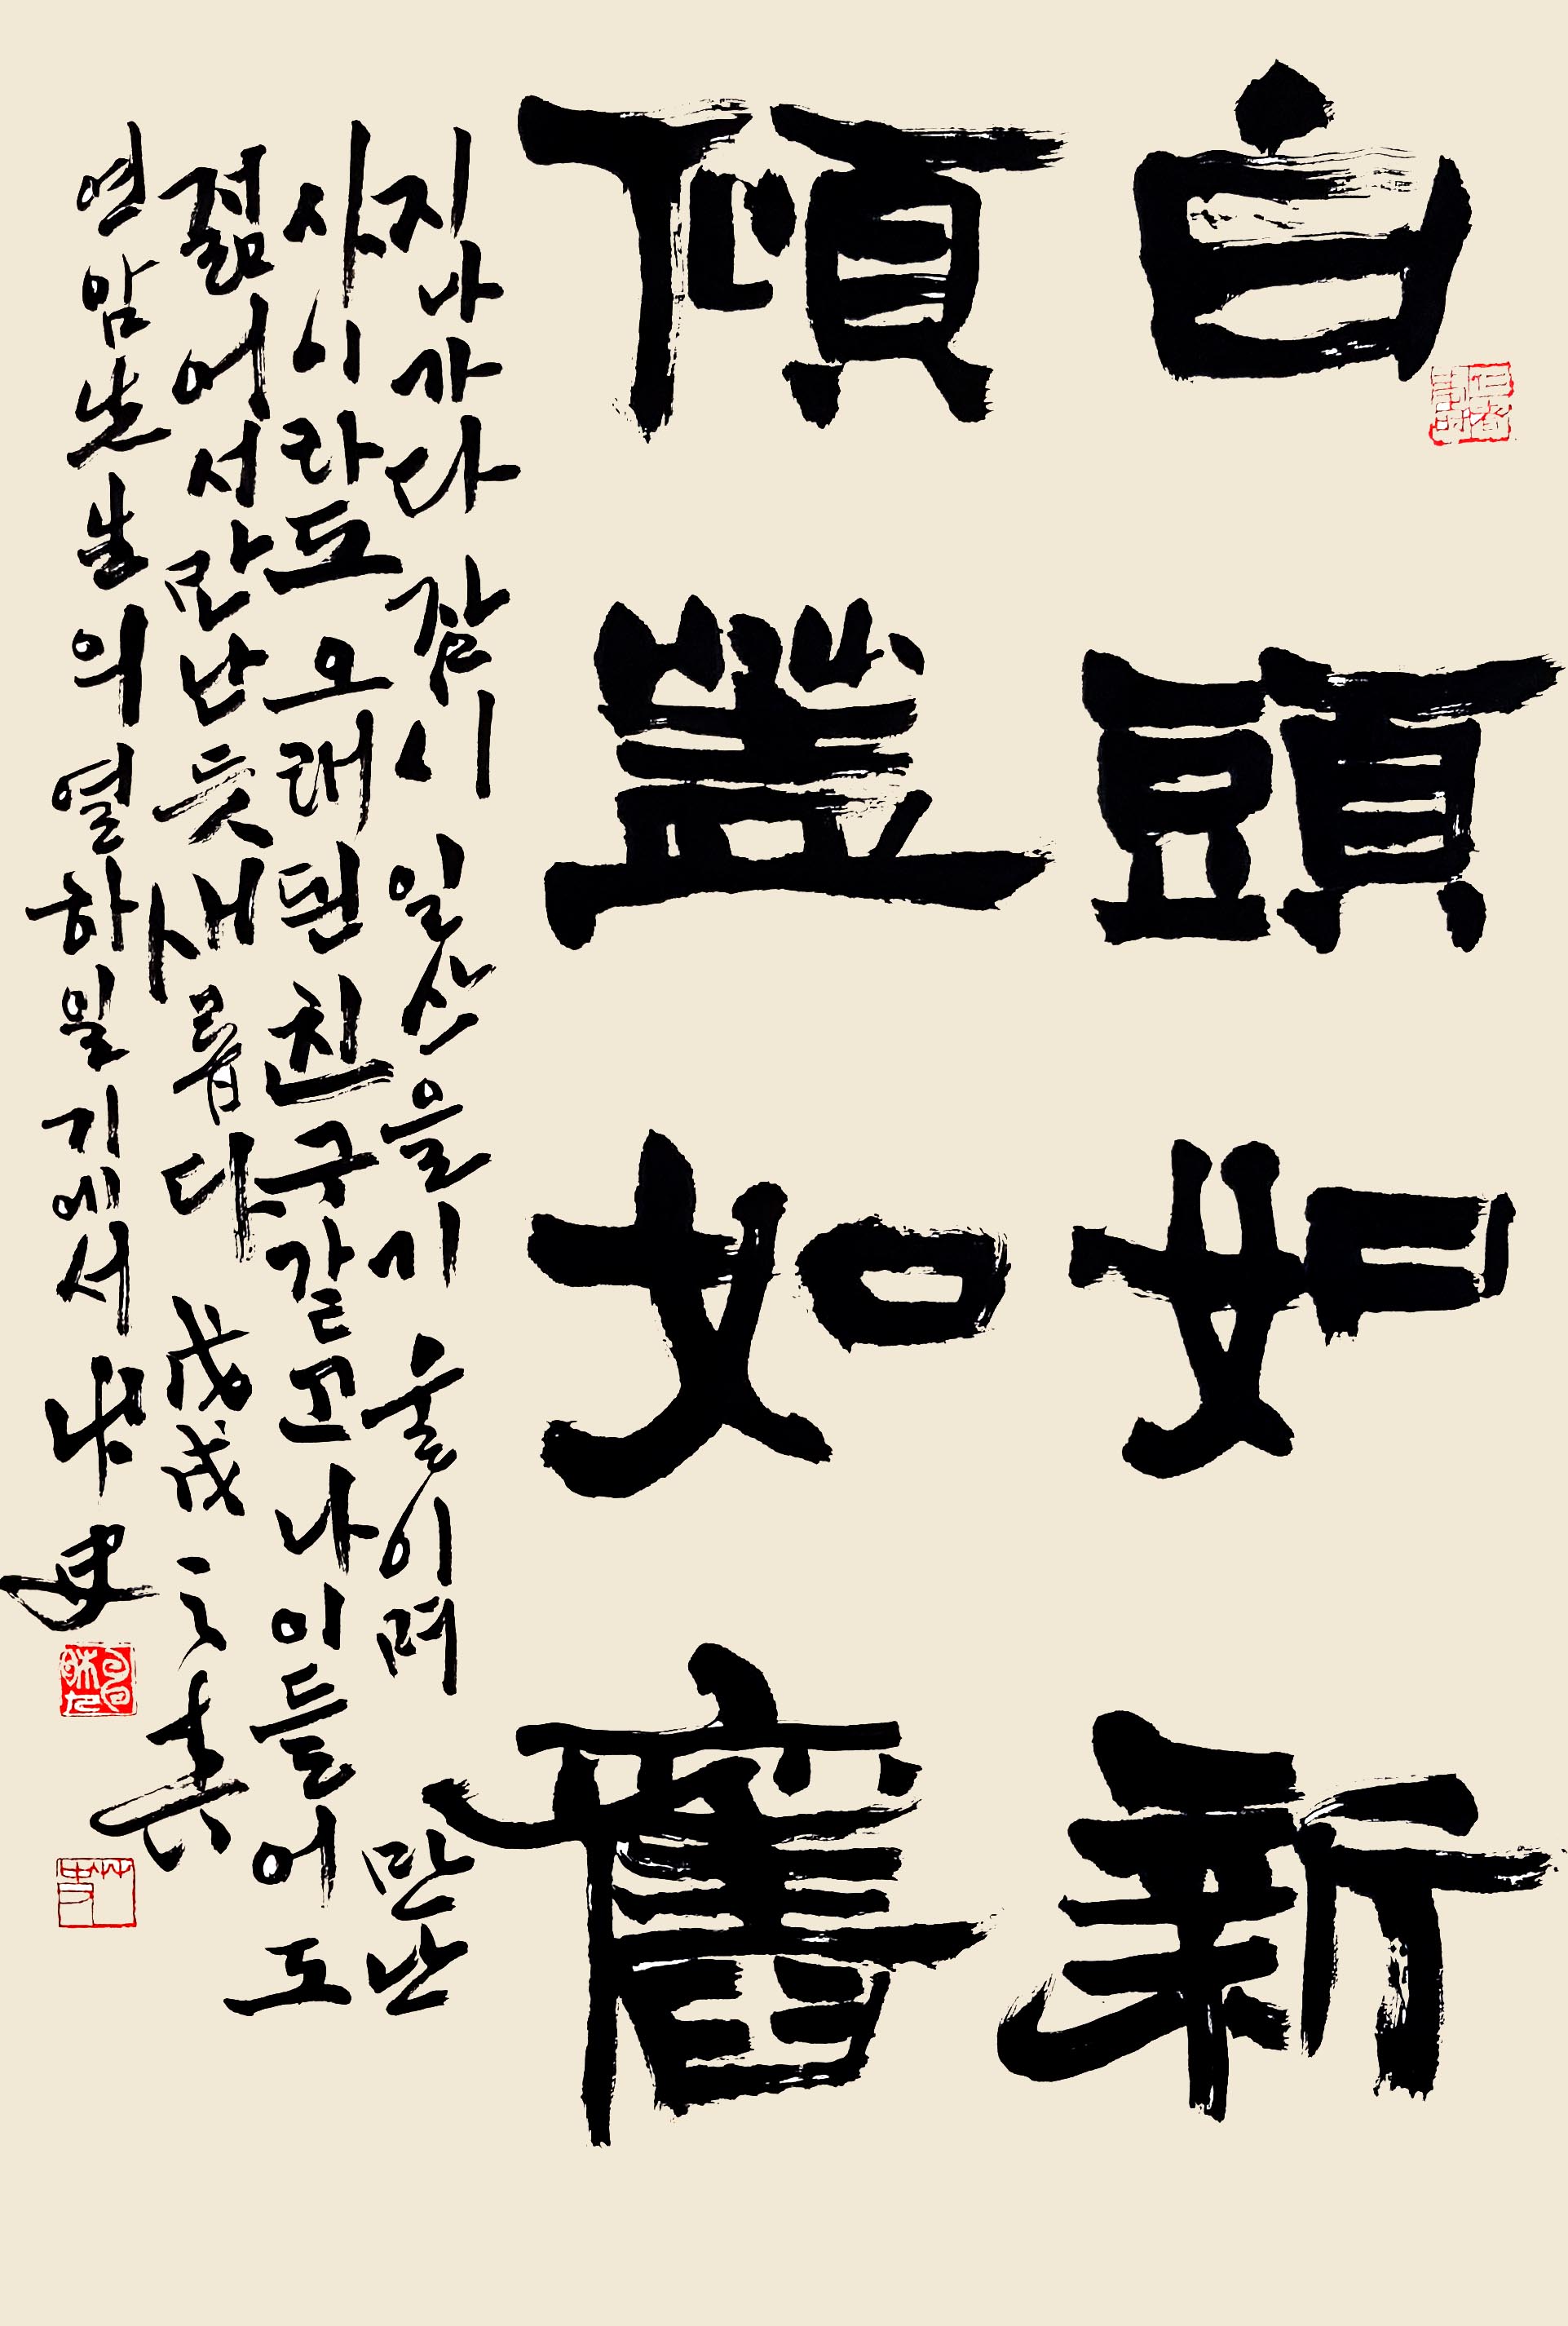 白頭如新
傾蓋如舊
지나가다 잠시 일산을 기울이며 만난
사이라도 오래된 친구 같고 나이 들어도
젊어서 만난 듯 새롭다 戊戌之春
연암先生의 열하일기에서 艸史